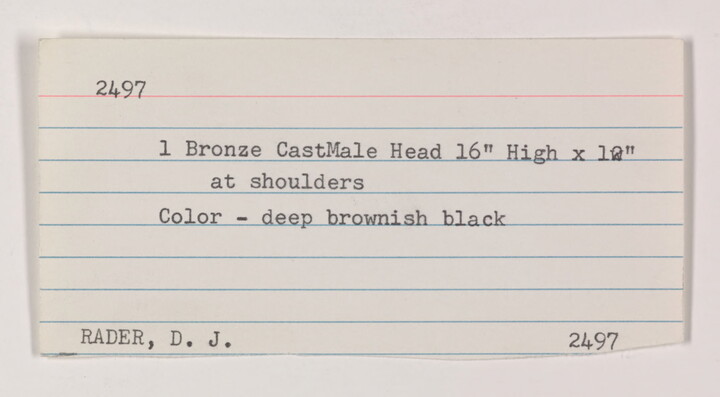 2497
1 Bronze CastMale Head 16" High x
at shoulders
Color - deep brownish black
RADER, D. J.
2497